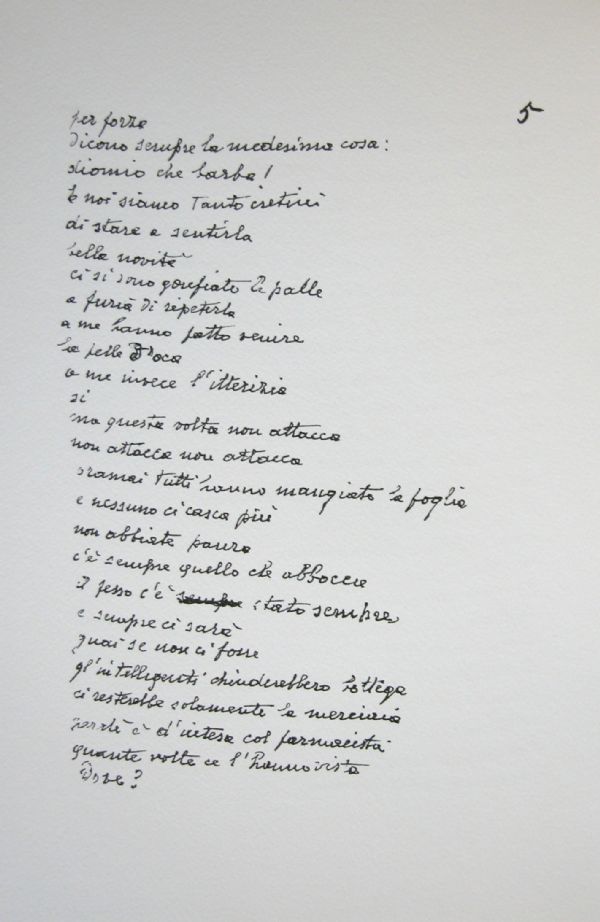 5
per forza
dicono sempre la medesima cosa:
diomio che barba!
E noi siamo tanto cretini
di stare a sentirla
bella novità
ci si sono gonfiate le palle
a furia di ripeterla
a me hanno fatto venire
la pelle d'oca
a me invece l'itterizia
si
ma questa volta non attacca
non attacca non attacca
oramai tutti hanno mangiato la foglia
e nessuno ci casca più
non abbiate paura
c'è sempre quello che abbocca
il fesso c'è sempre stato sempre
e sempre ci sarà
guai se non ci fosse
gl'intelligenti chiuderebbero bottega
ci resterebbe solamente la merciaia
perchè è d'intesa col farmacista
quante volte ce l'hanno vista
Dove?